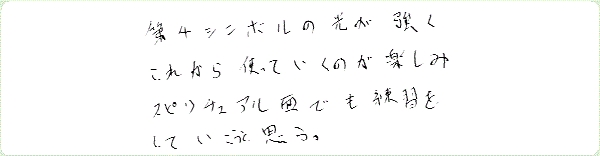 第4シンボルの光が強く
これから使っていくのが楽しみ
スピリチュアル面でも練習を
していこうと思う。